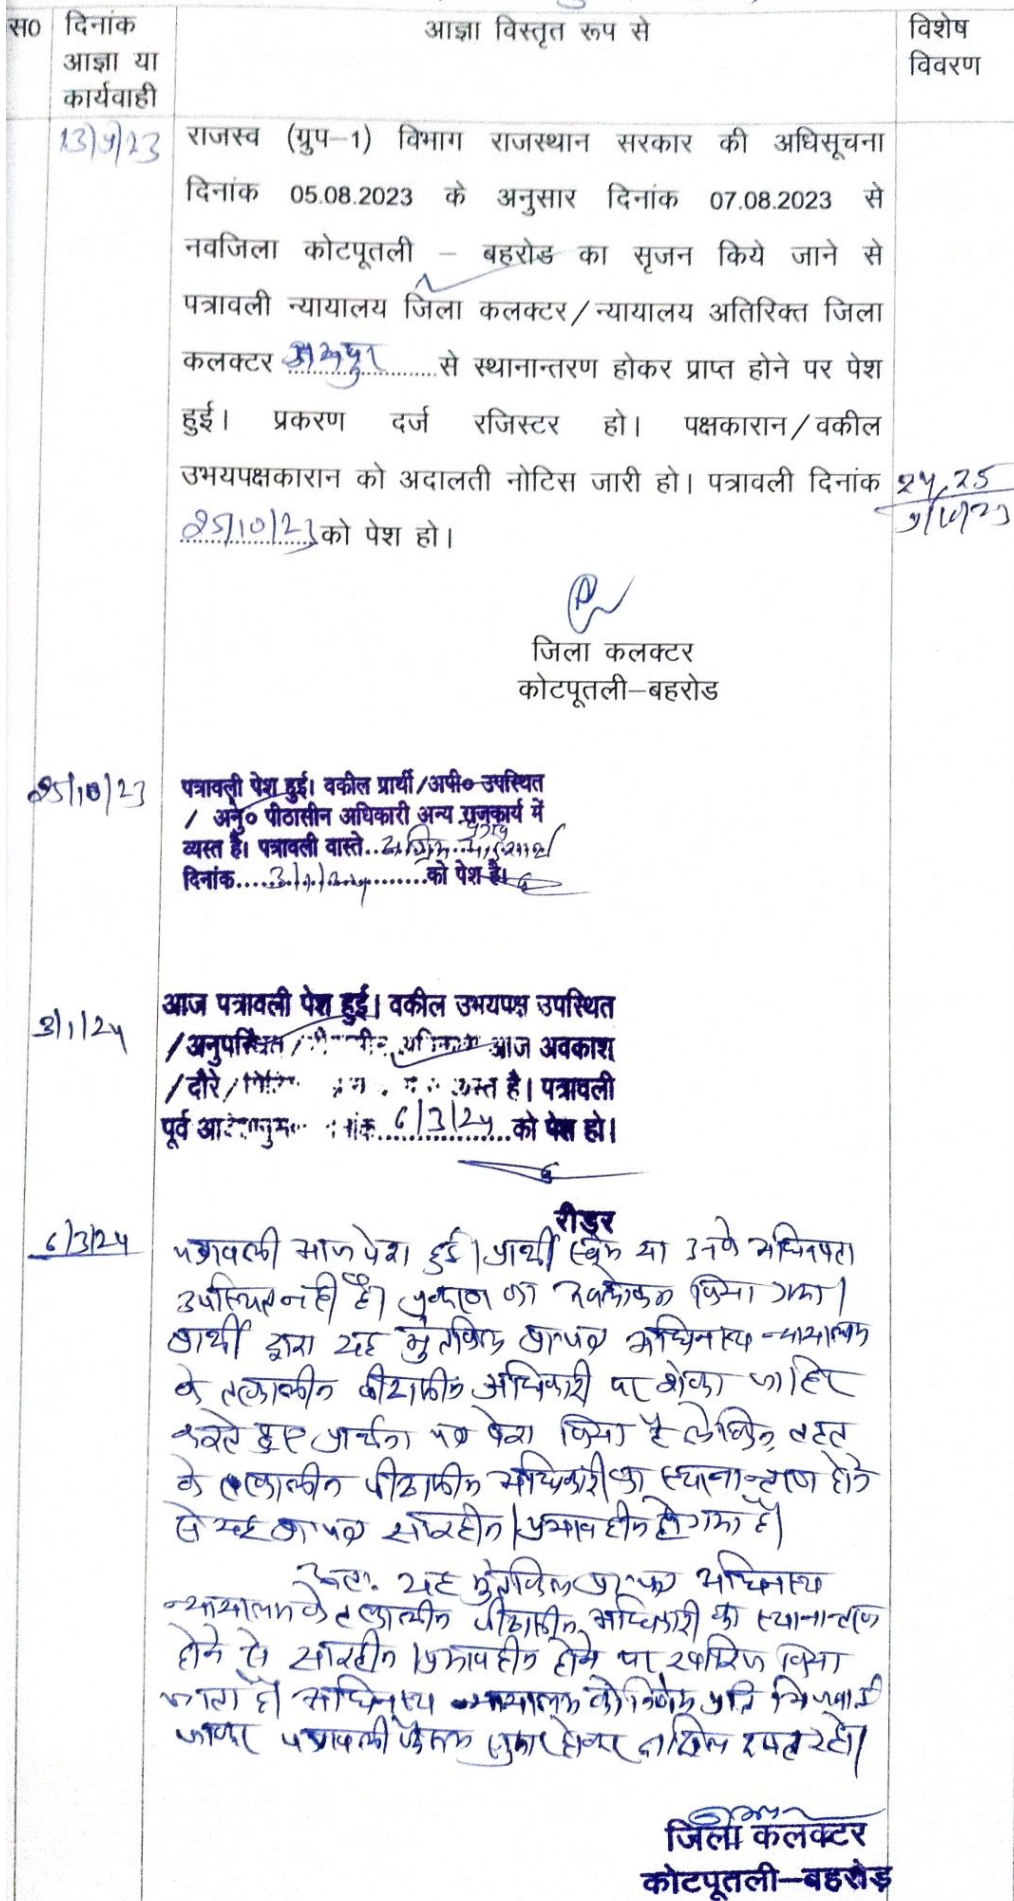 स0 दिनांक आज्ञा विस्तृत रूप से विशेष
आज्ञा या विवरण
कार्यवाही
13/9/23 राजस्व (ग्रुप–1) विभाग राजस्थान सरकार की अधिसूचना
दिनांक 05.08.2023 के अनुसार दिनांक 07.08.2023 से
नवजिला कोटपूतली – बहरोड का सृजन किये जाने से
पत्रावली न्यायालय जिला कलक्टर/न्यायालय अतिरिक्त जिला
कलक्टर जयपुर से स्थानान्तरण होकर प्राप्त होने पर पेश
हुई। प्रकरण दर्ज रजिस्टर हो। पक्षकारान/वकील
उभयपक्षकारान को अदालती नोटिस जारी हो। पत्रावली दिनांक 24,25
25/10/23 को पेश हो। 9/10/23
जिला कलक्टर
कोटपूतली–बहरोड
25/10/23 पत्रावली पेश हुई। वकील प्रार्थी/अपी० उपस्थित
/ अनु० पीठासीन अधिकारी अन्य राजकार्य में
व्यस्त है। पत्रावली वास्ते..अग्रिम कार्यवाही
दिनांक....3/1/24....को पेश है।
आज पत्रावली पेश हुई। वकील उभयपक्ष उपस्थित
3/1/24 /अनुपस्थित/ आज अवकाश
/दौरे/ व्यस्त है। पत्रावली
पूर्व 6/3/24 को पेश हो।
रीडर
6/3/24 पत्रावली आज पेश हुई। प्रार्थी स्वयं या उनके अधिवक्ता
उपस्थित नहीं है। प्रकरण का अवलोकन किया गया।
प्रार्थी द्वारा यह मुंतकिल प्रा०पत्र अधिनस्थ न्यायालय
के तत्कालीन पीठासीन अधिकारी पर शंका जाहिर
करते हुए प्रार्थना पत्र पेश किया है लेकिन तहत
के तत्कालीन पीठासीन अधिकारी का स्थानान्तरण होने
से यह प्रा०पत्र सारहीन/प्रभावहीन हो गया है।
अतः यह मुंतकिल प्रा०पत्र अधिनस्थ
न्यायालय के तत्कालीन पीठासीन अधिकारी का स्थानान्तरण
होने से सारहीन/प्रभावहीन होने पर खारिज किया
जाता है। अधिनस्थ न्यायालय को निर्णय प्रति भिजवाई
जाकर पत्रावली फैसल शुमार होकर दाखिल दफ्तर हो।
जिला कलक्टर
कोटपूतली–बहरोड़